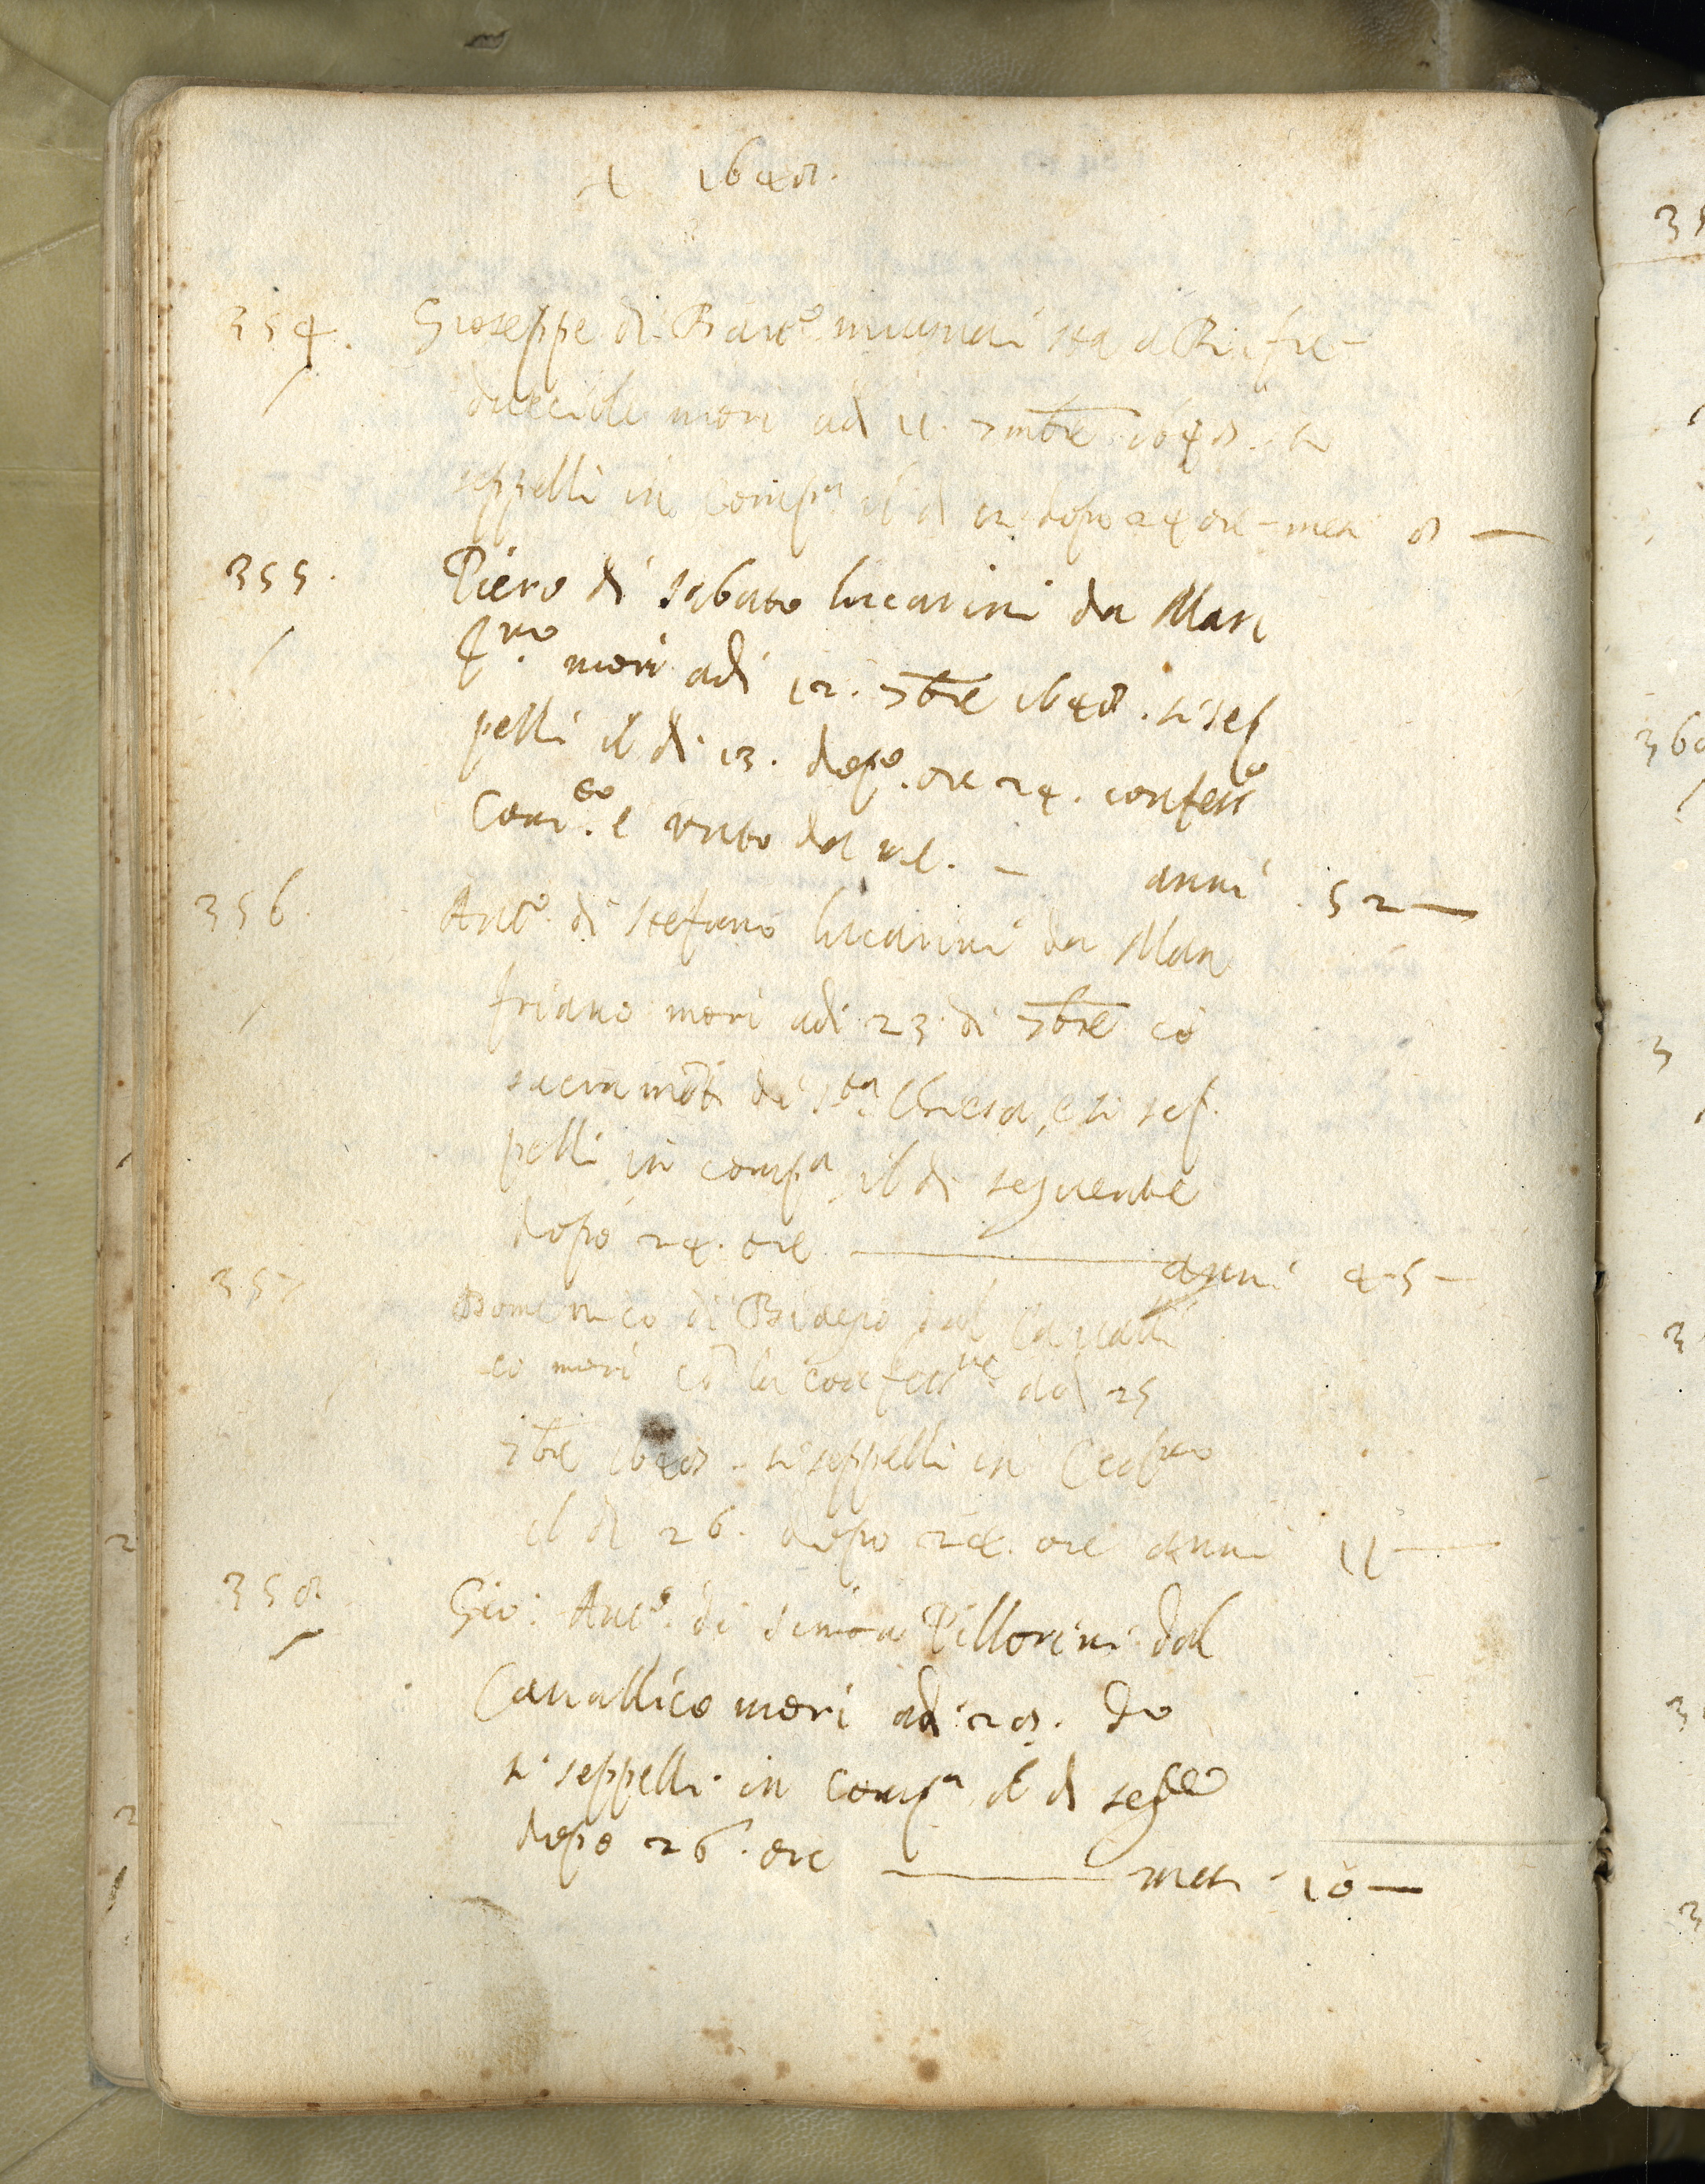 + 1648.
354. Gioseppe di Bart.o mugnai sta a Rifre-
morì ad 11. 7mbre 1648. si
seppellì in Comp.a il dì 12 dopo 24 ore - mesi 8 —
355. Piero di sabato lucarini da Man
f.no morì adì 12. 7bre 1648. si sep
pellì il dì 13. dopo. ore 24. confess.o
Com.to e unto dal me. — anni 52 —
356. Ant.o di stefano lucarini da Man
friano morì adi 23 di 7bre cō
sacramēti di S.ta Chiesa, e si sep
pellì in comp.a il dì seguente
dopo 24. ore — anni 45 —
357 Domenico di Biagio dal Cavalli
co morì cō la confess.ne adì 25
7bre 1648. si seppellì in
il dì 26. dopo 24. ore anni 11 —
358 Gio: Ant.o di simōn Pillorini dal
Cavallico morì adi 28. do
si seppellì in comp.a il dì seg.te
dopo 26. ore — mesi 10 —
35
360
3
3
3
3